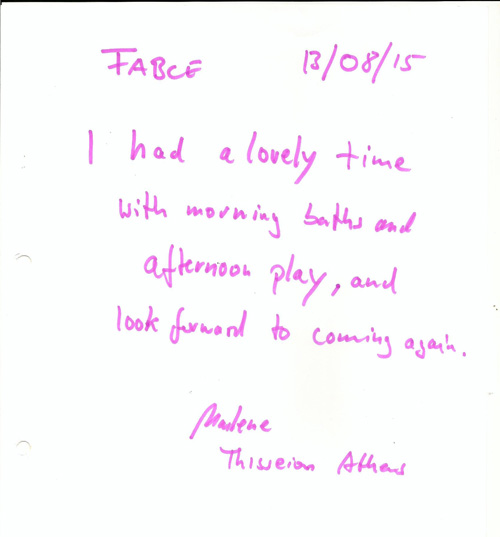 FABCE 13/08/15
I had a lovely time
with morning baths and
afternoon play, and
look forward to coming again.
Marlene
Thisseion Athens